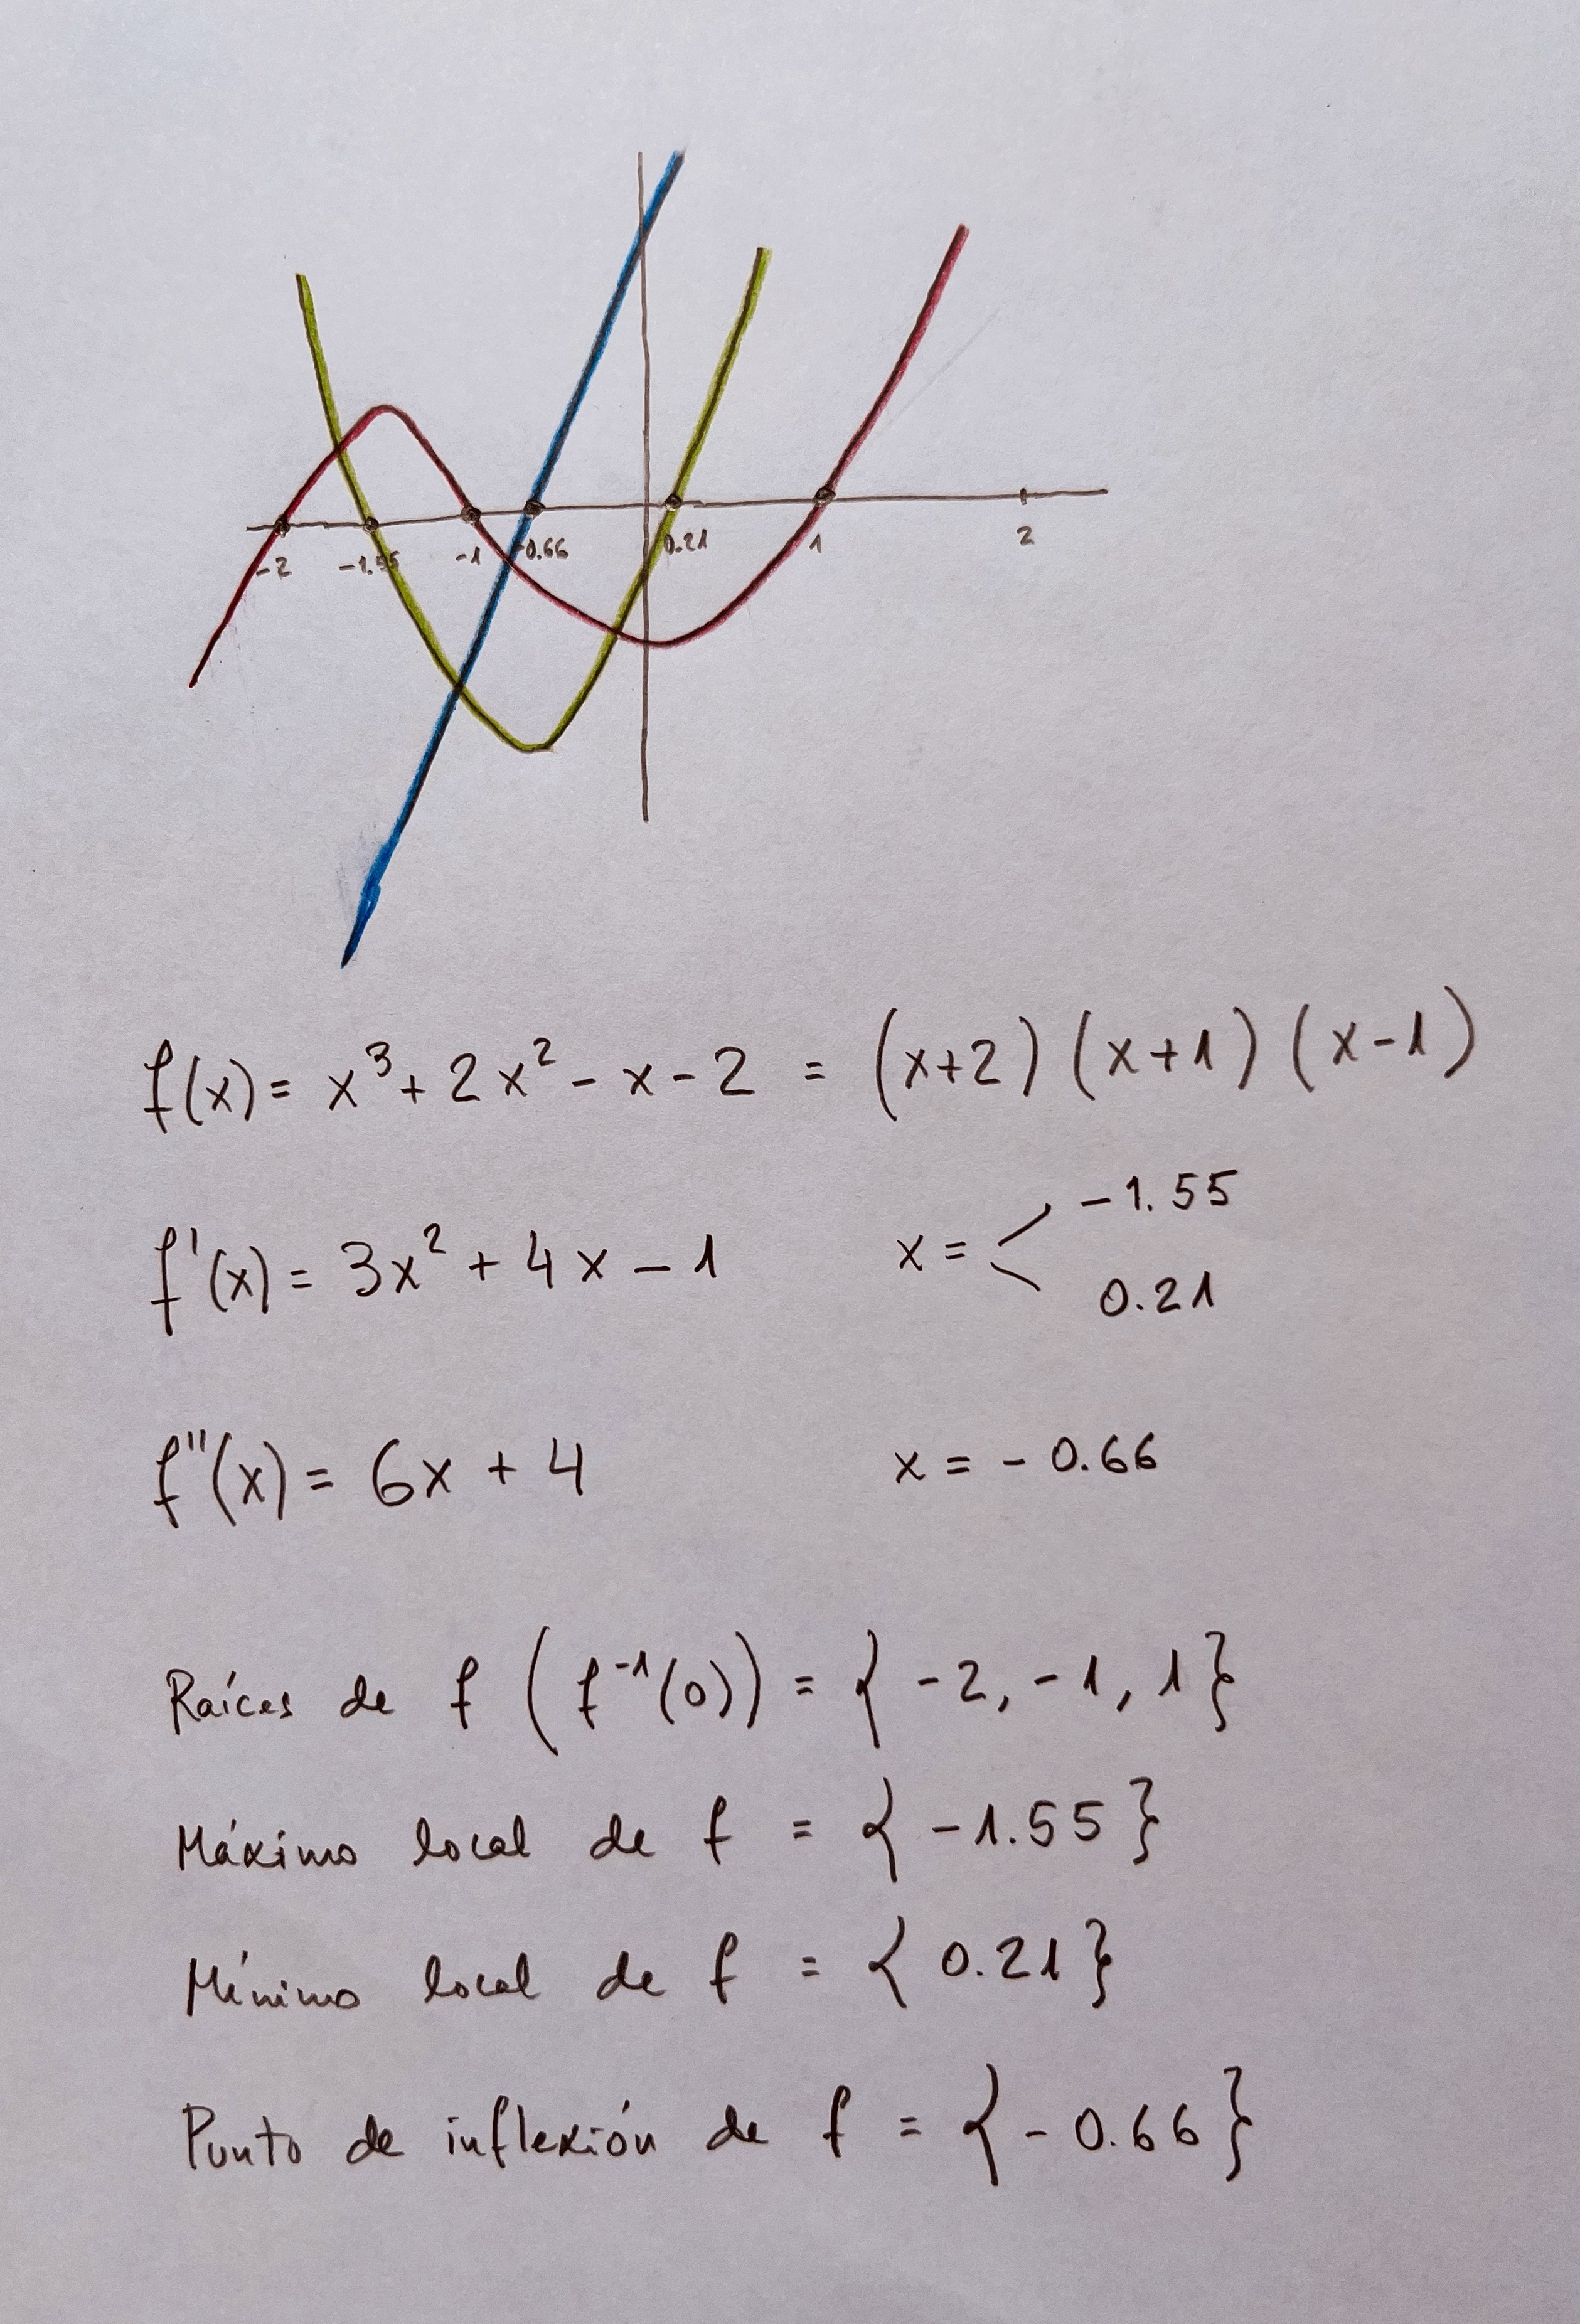 -2 -1.55 -1 -0.66 0.21 1 2
f(x) = x³ + 2x² - x - 2 = (x+2) (x+1) (x-1)
-1.55
f'(x) = 3x² + 4x - 1 x = <
0.21
f''(x) = 6x + 4 x = - 0.66
Raíces de f (f⁻¹(0)) = { -2, -1, 1}
Máximo local de f = { -1.55 }
Mínimo local de f = { 0.21 }
Punto de inflexión de f = { - 0.66 }